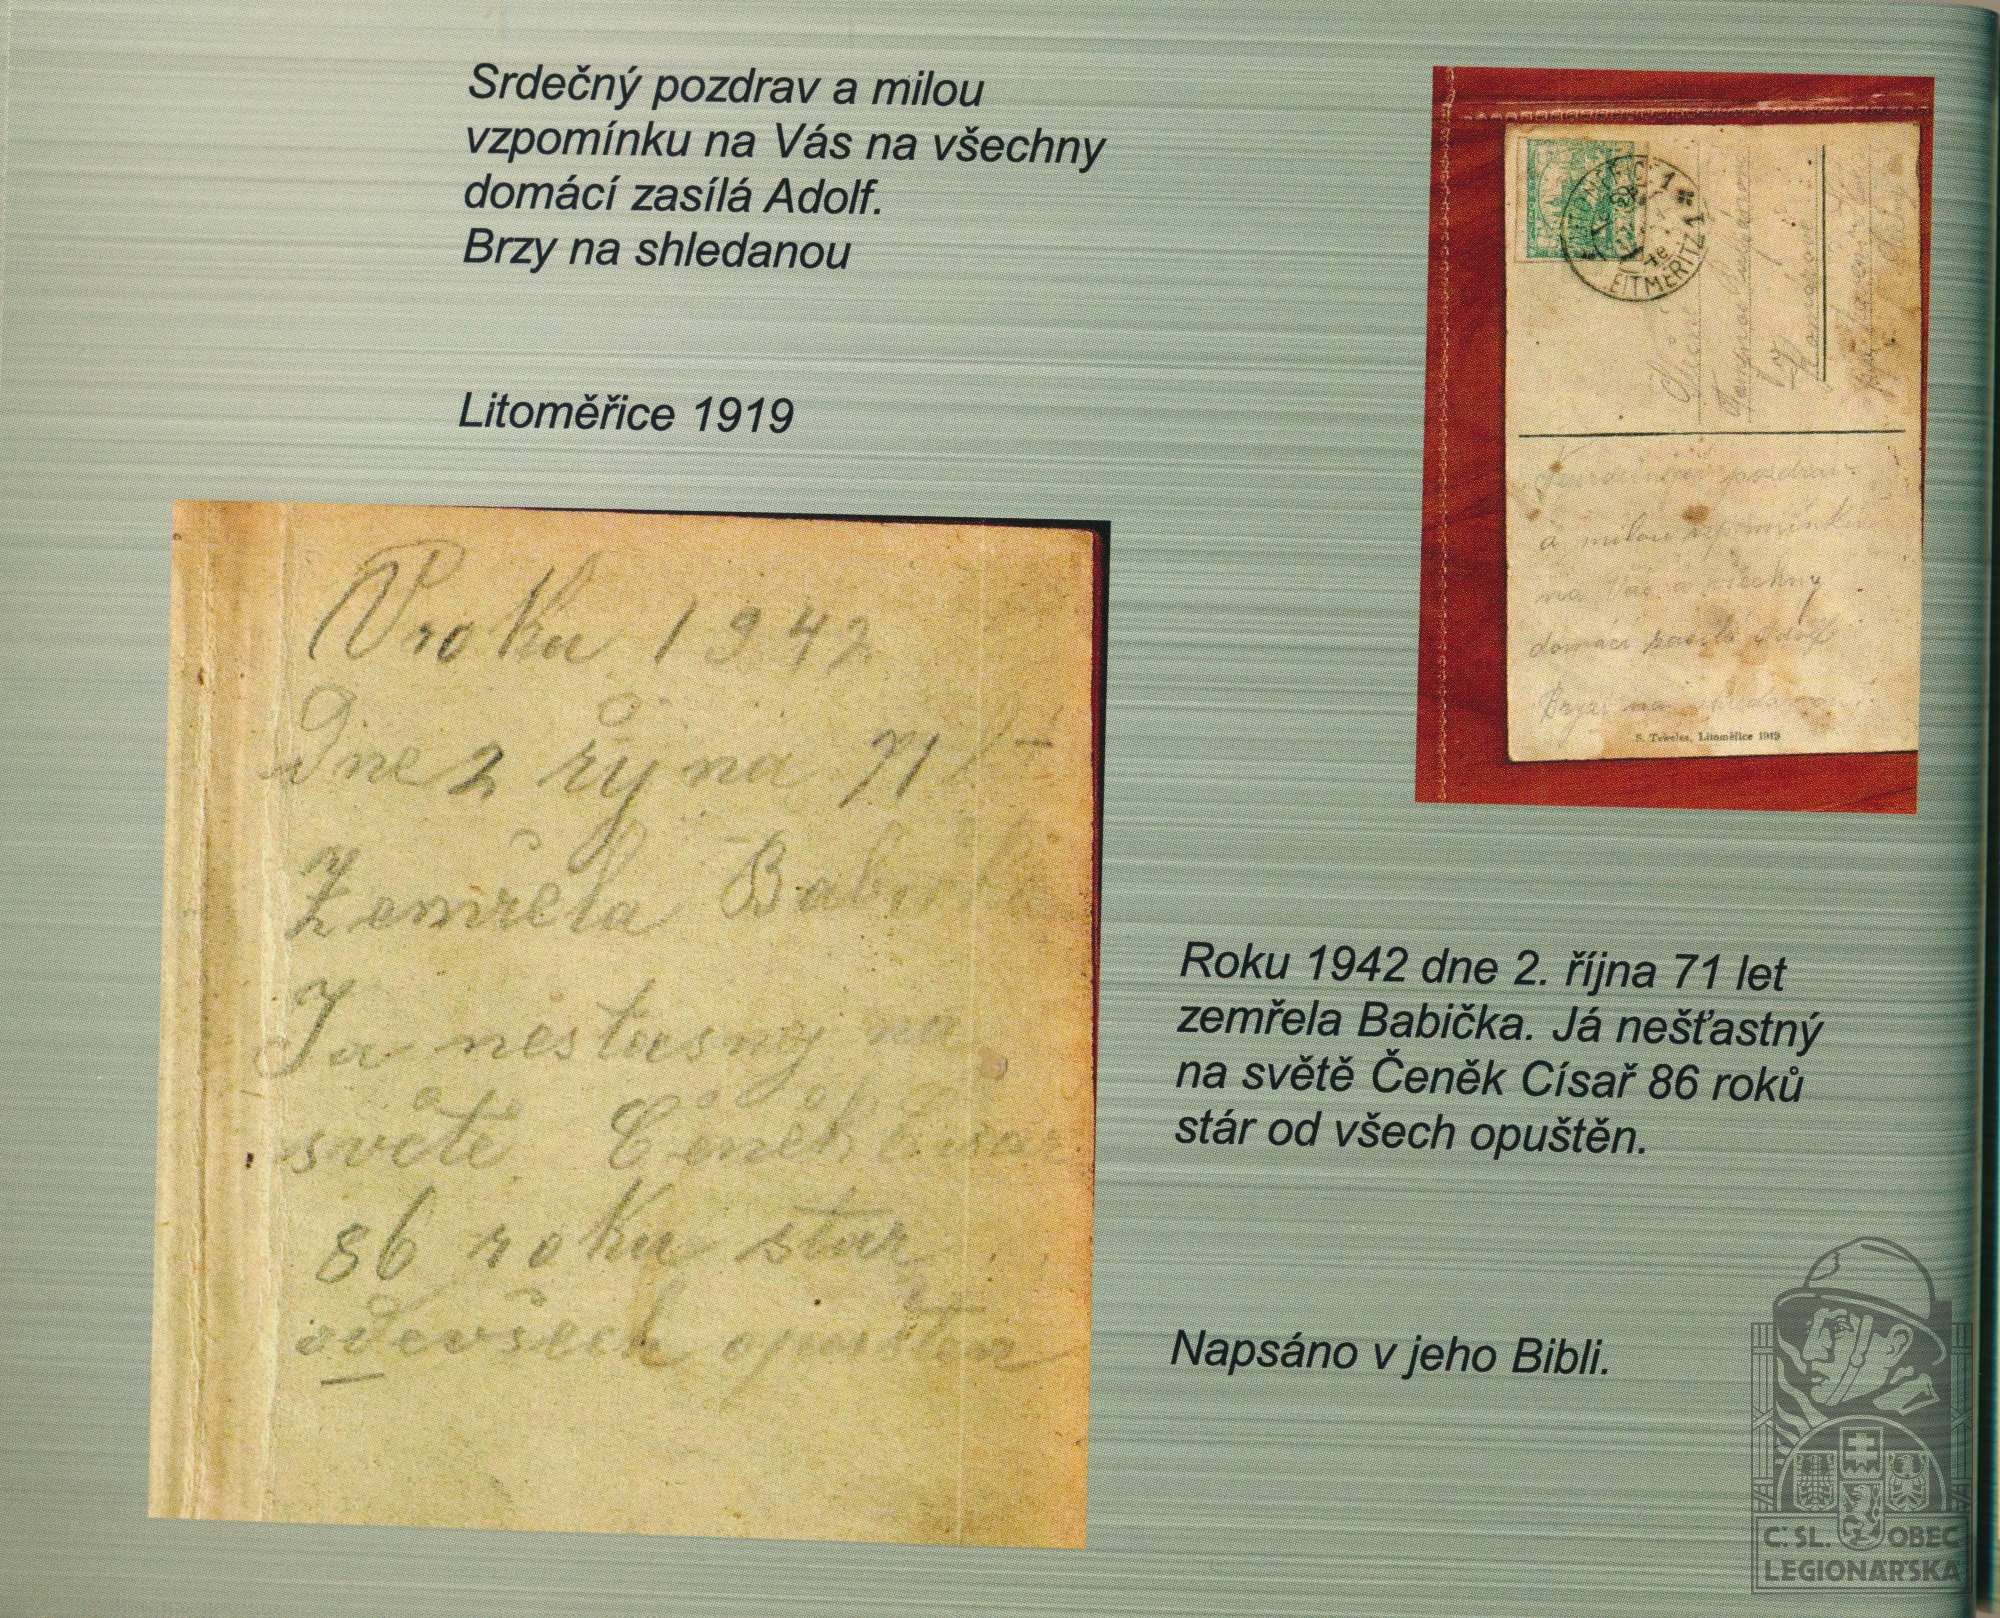 Srdečný pozdrav a milou
vzpomínku na Vás na všechny
domácí zasílá Adolf.
Brzy na shledanou
Litoměřice 1919
LEITMERITZ 1
pozdrav
a milou vzpomínku
na Vás a všechny
domácí zasílá Adolf
Brzy na shledanou
S. Tekeles, Litoměřice 1919
Roku 1942
Dne 2 řijna 71 let
Zemřela Babička
Ja nestasny na
světě Čeněk Cisař
86 roku star
odevšech opuštěn
Roku 1942 dne 2. října 71 let
zemřela Babička. Já nešťastný
na světě Čeněk Císař 86 roků
stár od všech opuštěn.
Napsáno v jeho Bibli.
Č. SL. OBEC
LEGIONÁŘSKÁ